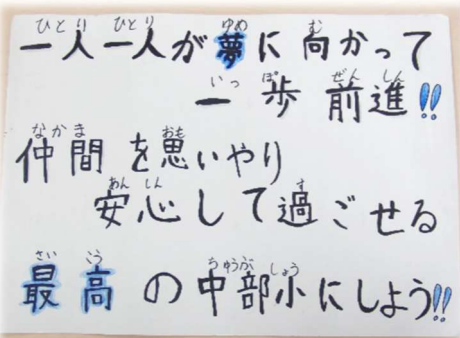 一人一人が夢に向かって
一歩前進!!
仲間を思いやり
安心して過ごせる
最高の中部小にしよう!!